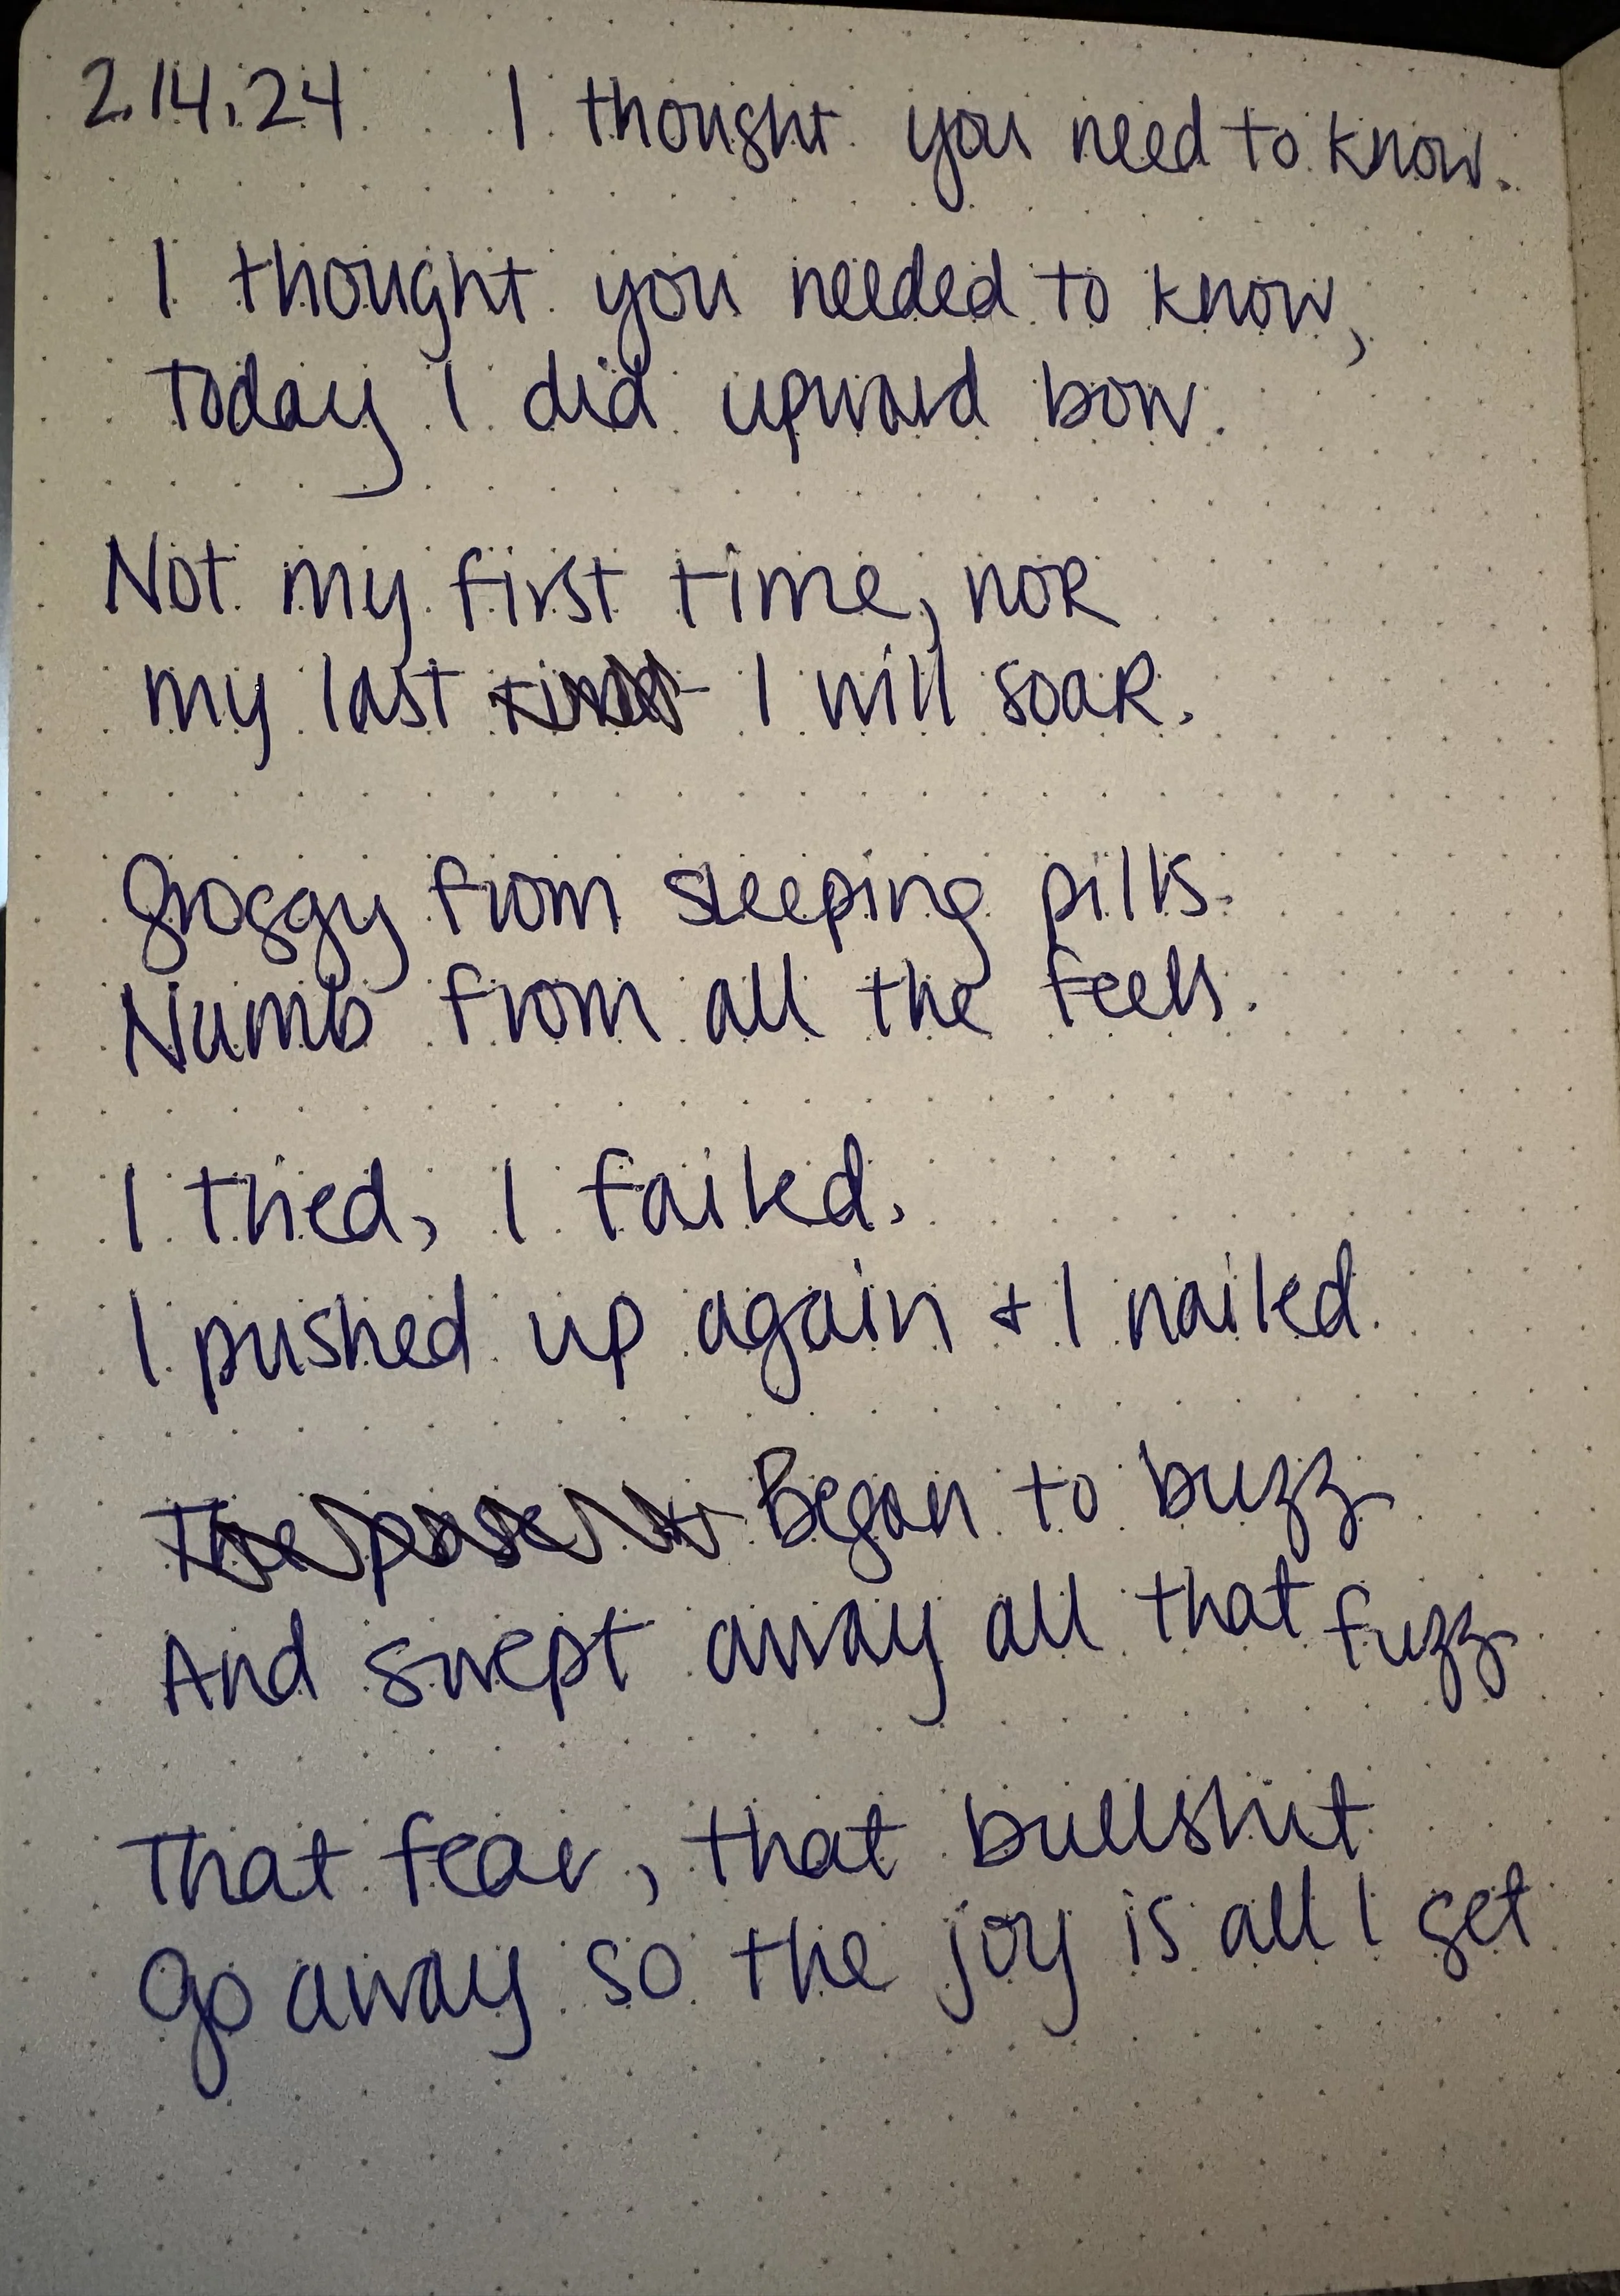 2.14.24 I thought you need to know.
I thought you needed to know,
Today I did upward bow.
Not my first time, nor
my last I will soar.
Groggy from sleeping pills.
Numb from all the feels.
I tried, I failed.
I pushed up again + I nailed.
Began to buzz
And swept away all that fuzz
That fear, that bullshit
Go away so the joy is all I get